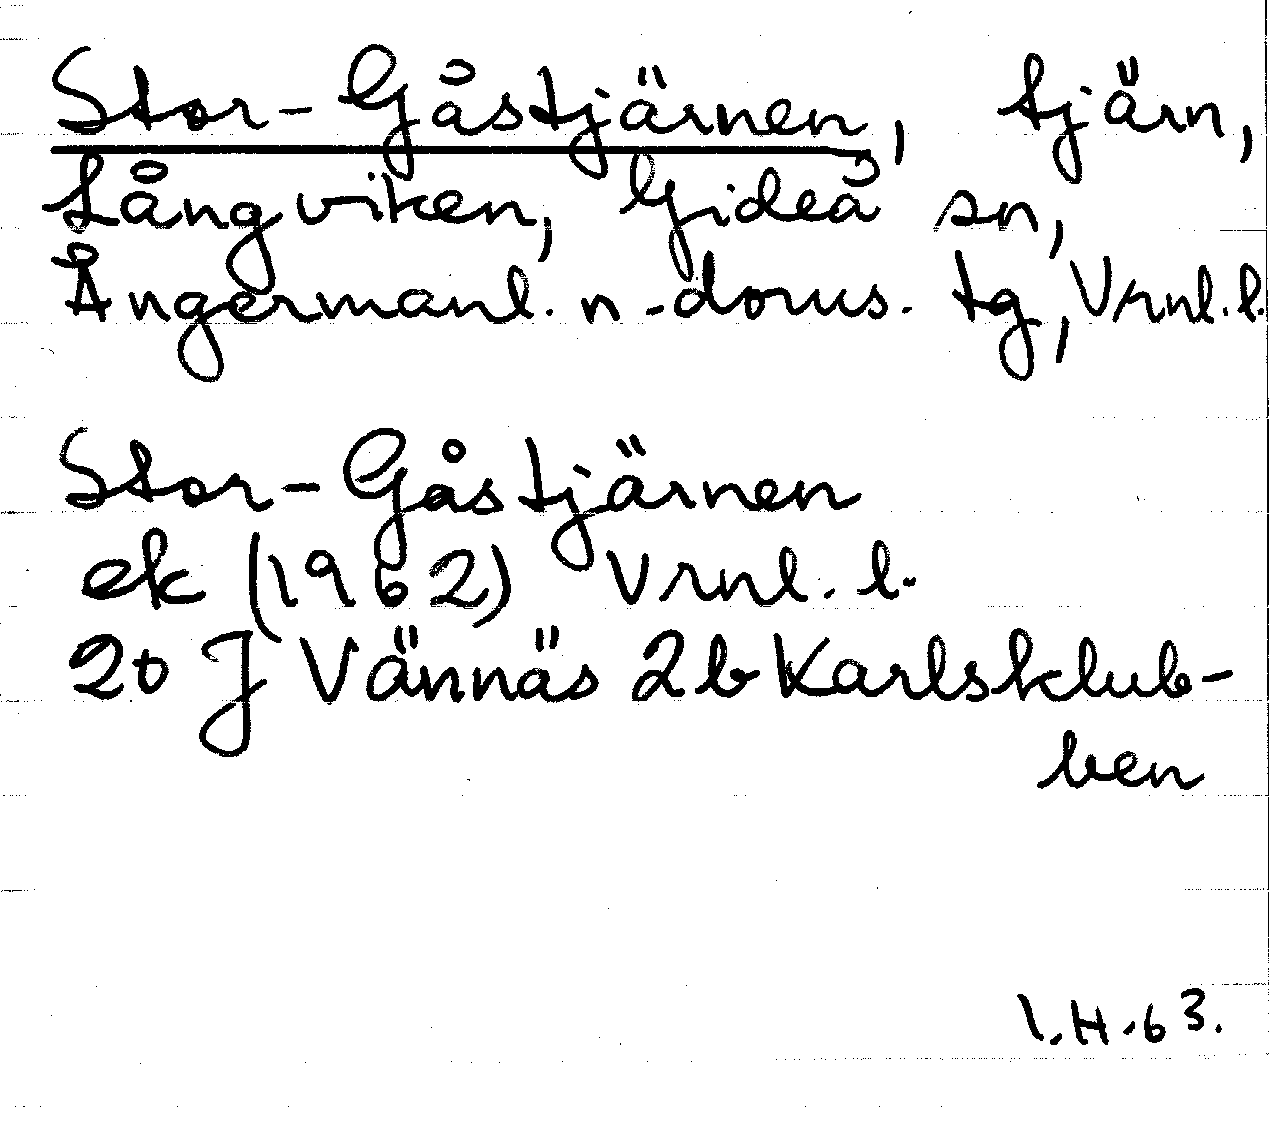 Stor-Gåstjärnen, tjärn,
Långviken, Gideå sn,
Ångermanl. n-doms. tg, Vrnl. l.
Stor-Gåstjärnen
ek (1962) Vrnl. l.
20 J Vännäs 2b Karlsklub-
ben
I.H.63.